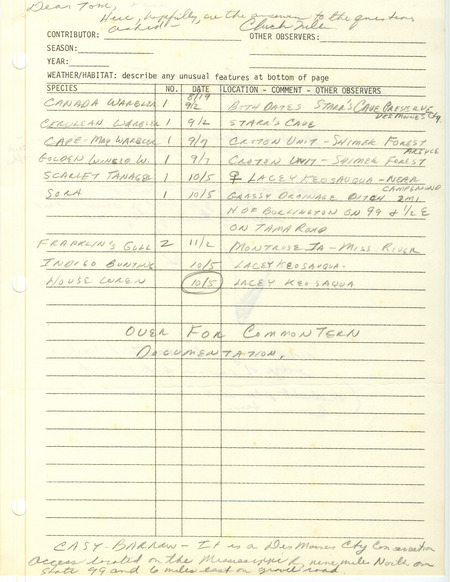 Dear Tom,
Here, hopefully, are the answers to the questions
asked - Chuck Fuller
CONTRIBUTOR: OTHER OBSERVERS:
SEASON:
YEAR:
WEATHER/HABITAT: describe any unusual features at bottom of page
SPECIES NO. DATE LOCATION - COMMENT - OTHER OBSERVERS
8/19
CANADA WARBLER 1 9/2 BOTH DATES STARR'S CAVE PRESERVE
DES MOINES CTY
CERULEAN WARBLER 1 9/2 STARR'S CAVE
CAPE-MAY WARBLER 1 9/7 CROTON UNIT - SHIMEK FOREST
GOLDEN WINGED W. 1 9/7 CROTON UNIT - SHIMEK FOREST
SCARLET TANAGER 1 10/5 ♀ LACEY KEOSAUQUA - NEAR
CAMPGROUND
SORA 1 10/5 GRASSY DRAINAGE DITCH 2 MI
N OF BURLINGTON ON 99 & 1/2 E
ON TAMA ROAD
FRANKLIN'S GULL 2 11/2 MONTROSE IA - MISS RIVER
INDIGO BUNTING 10/5 LACEY KEOSAUQUA.
HOUSE WREN 10/5 LACEY KEOSAQUA
OVER FOR COMMON TERN
DOCUMENTATION.
CASY-BARROW - It is a Des Moines Cty Conservation
access located on the Mississippi R. nine mile North on
state 99 and 6 miles east on gravel road